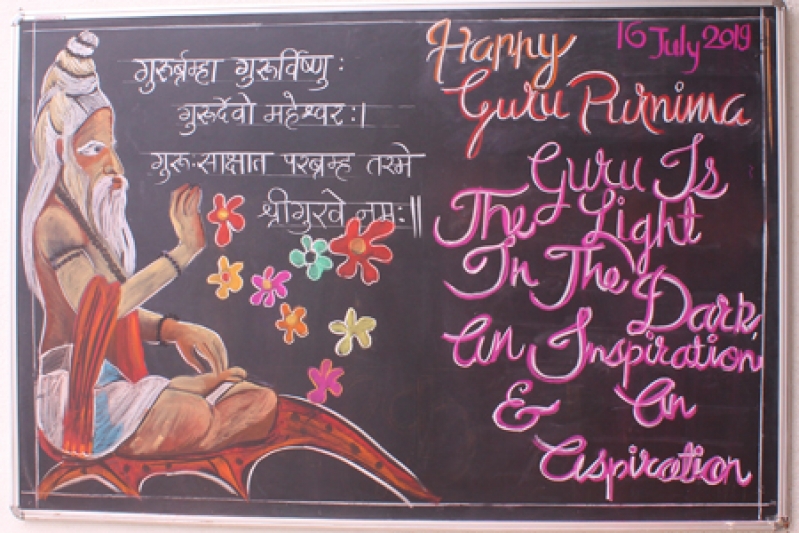 गुरुर्ब्रम्हा गुरुर्विष्णु:
गुरुर्देवो महेश्वर:।
गुरू:साक्षात परब्रम्ह तस्मे
श्रीगुरवे नम:॥
16 July 2019
Happy
Guru Purnima
Guru Is
The Light
In The Dark,
An Inspiration
& An
Aspiration